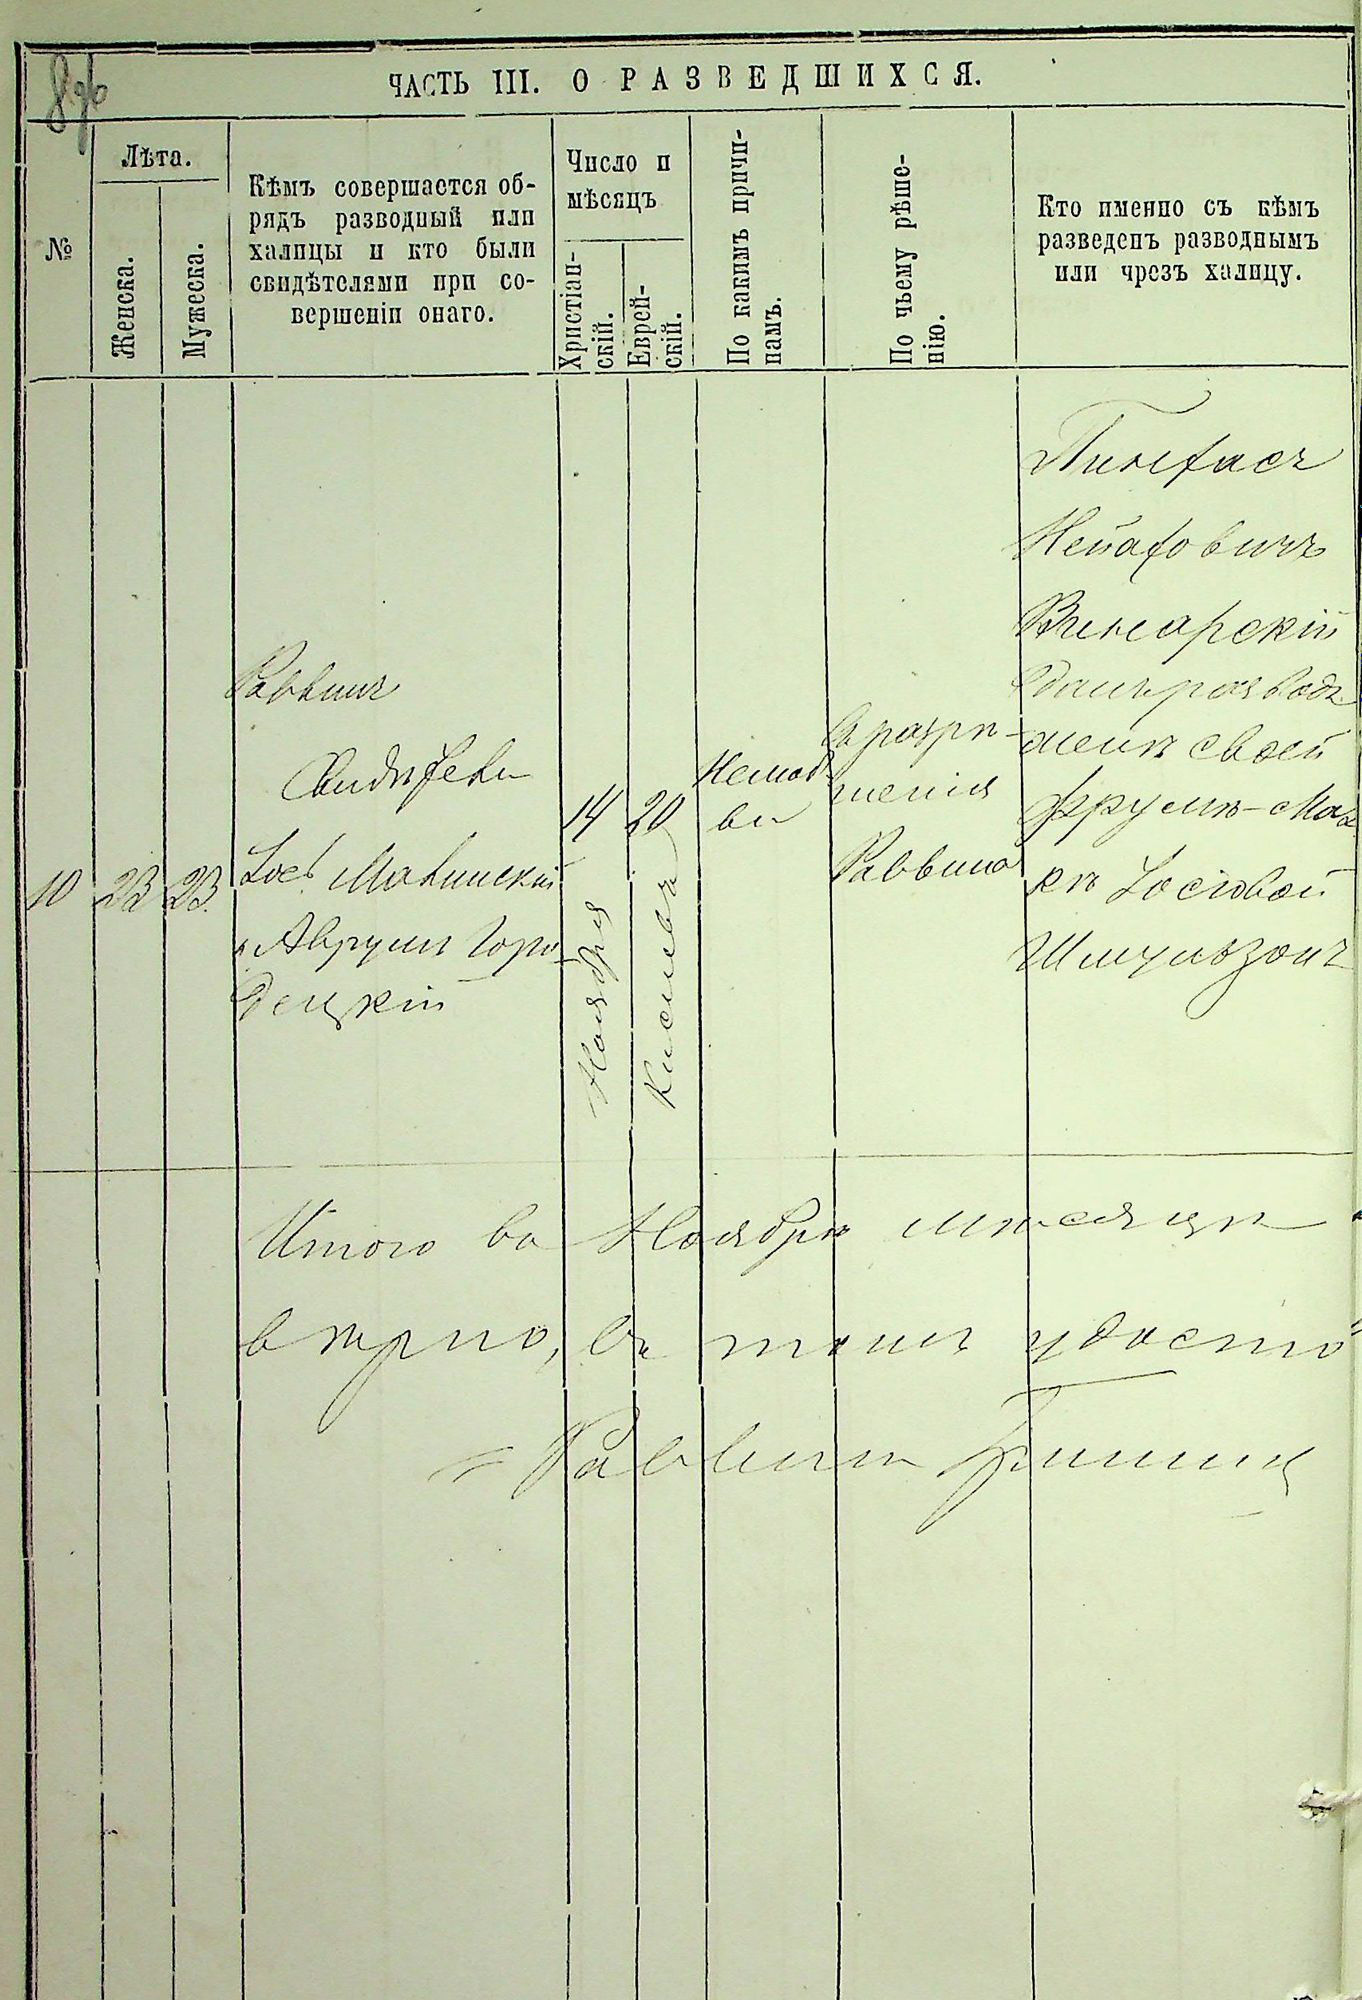 8 об
ЧАСТЬ III. О РАЗВЕДШИХСЯ.
№
Лѣта.
Женска.
Мужеска.
Кѣмъ совершается об-
рядъ разводный или
халицы и кто были
свидѣтелями при со-
вершеніи онаго.
Число и
мѣсяцъ
Христіан-
скій.
Еврей-
скій.
По какимъ причи-
намъ.
По чьему рѣше-
нію.
Кто именно съ кѣмъ
разведенъ разводнымъ
или чрезъ халицу.
10
23
23.
Раввинъ
Свидѣтели
Іось
и Аврумъ Горо-
децкій
14
Ноября
20
Кислевъ
Нелюб-
ви
Съ разрѣ-
шенія
Раввина
Пинхасъ
Винарскій
далъ разводъ
женѣ своей
Фрумѣ-Мал
кѣ Іосіовой
Шмульзонъ
Итого въ Ноябрѣ мѣсяцѣ
вѣрно, въ томъ удосто
Раввинъ